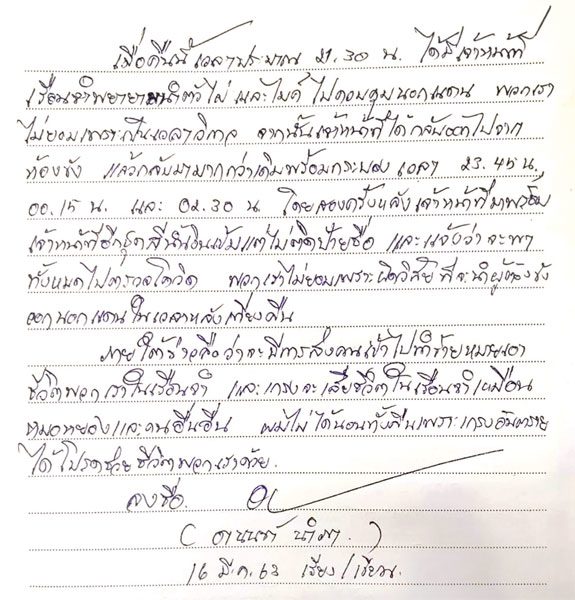 เมื่อคืนนี้ เวลาประมาณ 21.30 น. ได้มีเจ้าหน้าที่
เรือนจำพยายามนำตัวไผ่ และไมค์ ไปควบคุมนอกแดน พวกเรา
ไม่ยอมเพราะเป็นเวลาวิกาล จากนั้นเจ้าหน้าที่ได้กลับออกไปจาก
ห้องขัง แล้วกลับมามากกว่าเดิมพร้อมกระบอง เวลา 23.45 น,
00.15 น. และ 02.30 น. โดยสองครั้งหลังเจ้าหน้าที่มาพร้อม
เจ้าหน้าที่อีกชุดสีน้ำเงินเข้มแต่ไม่ติดป้ายชื่อ และแจ้งว่าจะพา
ทั้งหมดไปตรวจโควิด พวกเราไม่ยอมเพราะผิดวิสัยที่จะนำผู้ต้องขัง
ออกนอกแดนในเวลาหลังเที่ยงคืน
ภายใต้ข่าวลือว่าจะมีการส่งคนเข้าไปทำร้ายหมายเอา
ชีวิตพวกเราในเรือนจำ และเกรงจะเสียชีวิตในเรือนจำเหมือน
หมอหยองและคนอื่นอื่น ผมไม่ได้นอนทั้งคืนเพราะเกรงอันตราย
ได้โปรดช่วยชีวิตพวกเราด้วย.
ลงชื่อ.
( อานนท์ นำภา. )
16 มี.ค. 63 เรียง/เขียน.